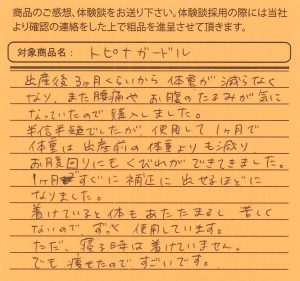 商品のご感想、体験談をお送り下さい。体験談採用の際には当社
より確認の連絡をした上で粗品を進呈させて頂きます。
対象商品名: トピナガードル
出産後3ヶ月くらいから体重が減らなく
なり、また腰痛やお腹のたるみが気に
なっていたので購入しました。
半信半疑でしたが、使用して1ヶ月で
体重は出産前の体重よりも減り、
お腹回りにもくびれができてきました。
1ヶ月ですぐに補正に出せるほどに
なりました。
着けていると体もあたたまるし、苦しく
ないので、ずっと使用しています。
ただ、寝る時は着けていません。
でも痩せたので、すごいです。